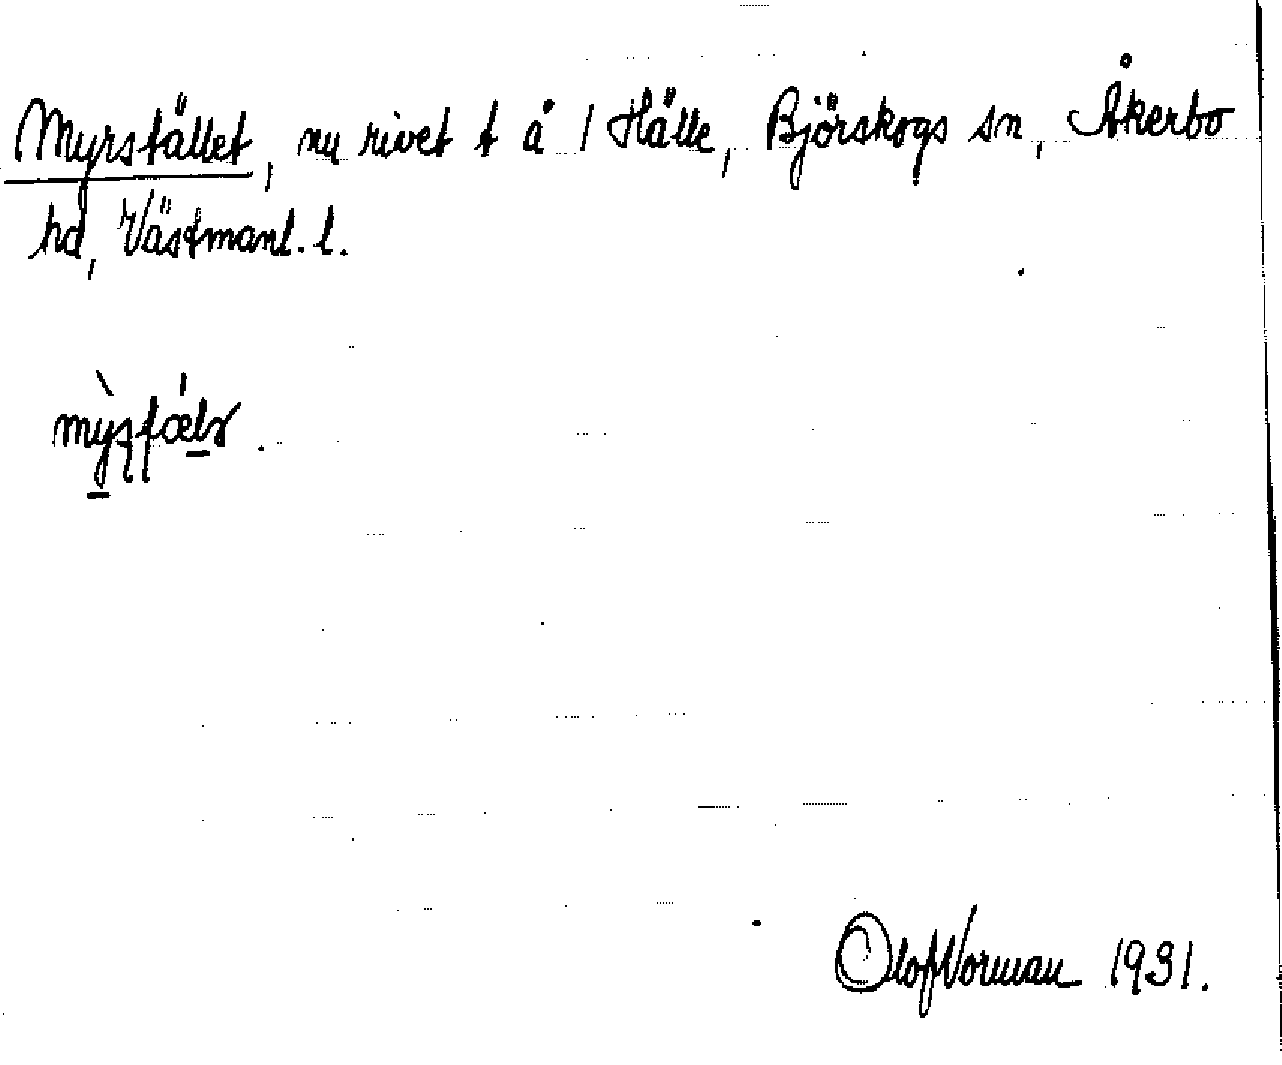 Myrstället, nu rivet t å 1 Hälle, Björskogs sn, Åkerbo
hd, Västmanl. l.
Olof Norman 1931.